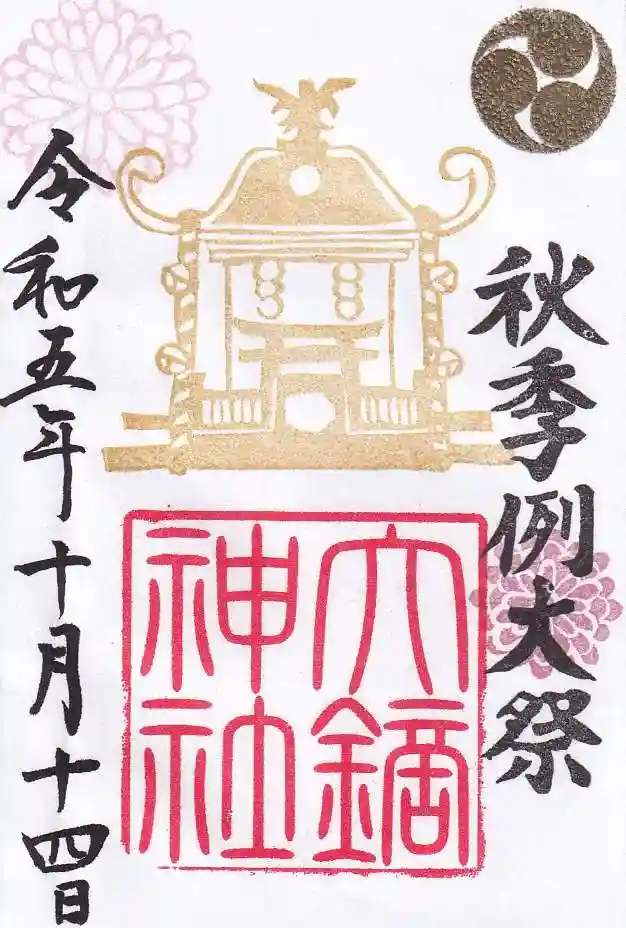 秋季例大祭
六鏑
神社
令和五年十月十四日